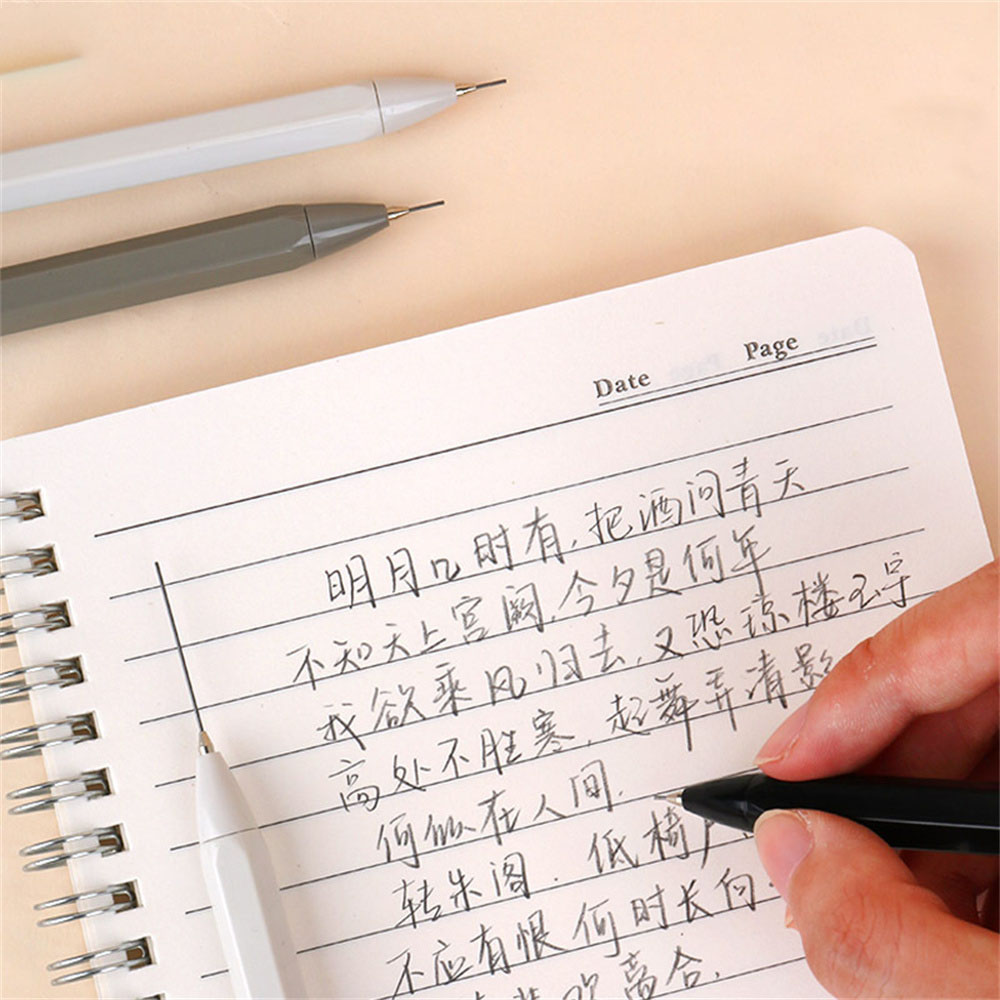 Date Page
明月几时有,把酒问青天
不知天上宫阙,今夕是何年
我欲乘风归去,又恐琼楼玉宇
高处不胜寒,起舞弄清影
何似在人间.
转朱阁.低椅户
不应有恨 何时长向
欢离合.